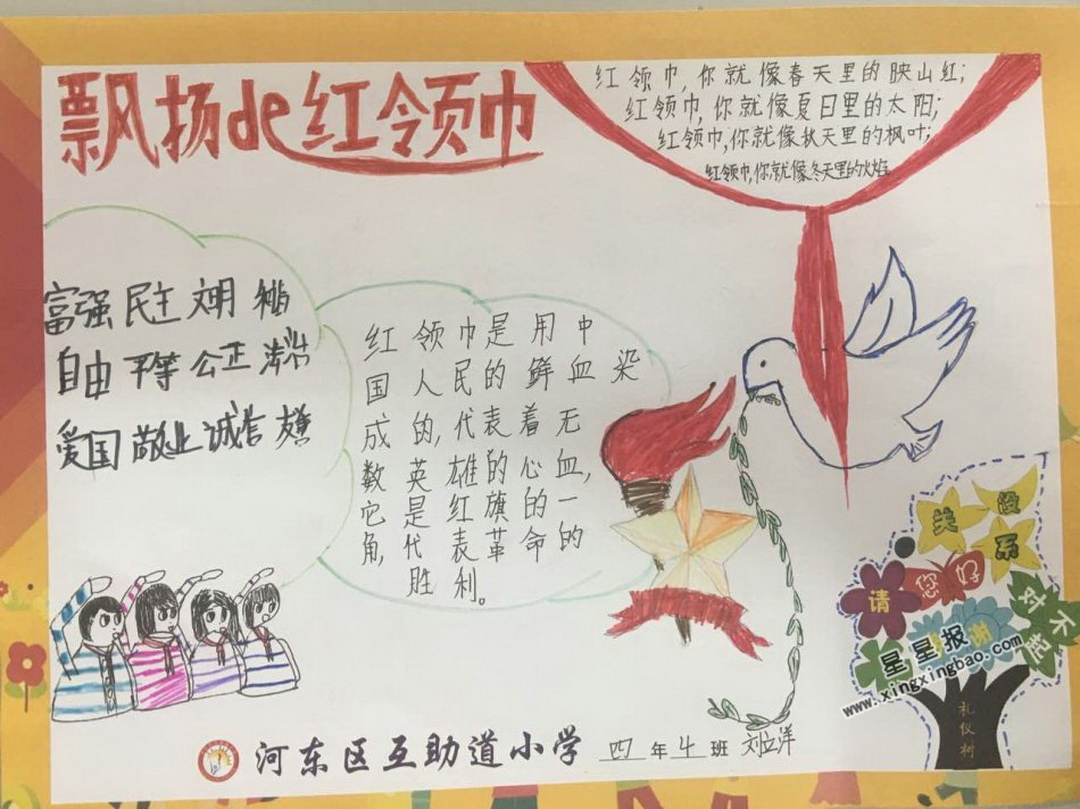 飘扬de红领巾
红领巾,你就像春天里的映山红;
红领巾,你就像夏日里的太阳;
红领巾,你就像秋天里的枫叶;
红领巾,你就像冬天里的火焰
富强 民主 文明 和谐
自由 平等 公正 法治
爱国 敬业 诚信 友善
红领巾是用中
国人民的鲜血染
成的,代表着无
数英雄的心血,
它是红旗的一
角,代表革命的
胜利。
没
关系
您好
请
对不起
谢
星星报
www.xingxingbao.com
礼仪树
河东区互助道小学 四年4班 刘立洋